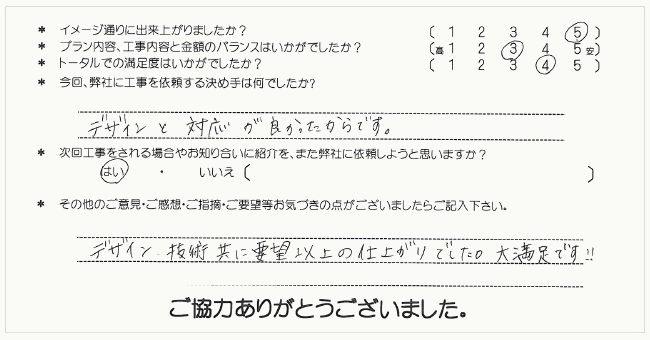 * イメージ通りに出来上がりましたか? ( 1 2 3 4 5 )
* プラン内容、工事内容と金額のバランスはいかがでしたか? (高 1 2 3 4 5 安)
* トータルでの満足度はいかがでしたか? ( 1 2 3 4 5 )
* 今回、弊社に工事を依頼する決め手は何でしたか?
デザインと対応が良かったからです。
* 次回工事をされる場合やお知り合いに紹介を、また弊社に依頼しようと思いますか?
はい ・ いいえ ( )
* その他のご意見・ご感想・ご指摘・ご要望等お気づきの点がございましたらご記入下さい。
デザイン、技術共に要望以上の仕上がりでした。大満足です!!
ご協力ありがとうございました。